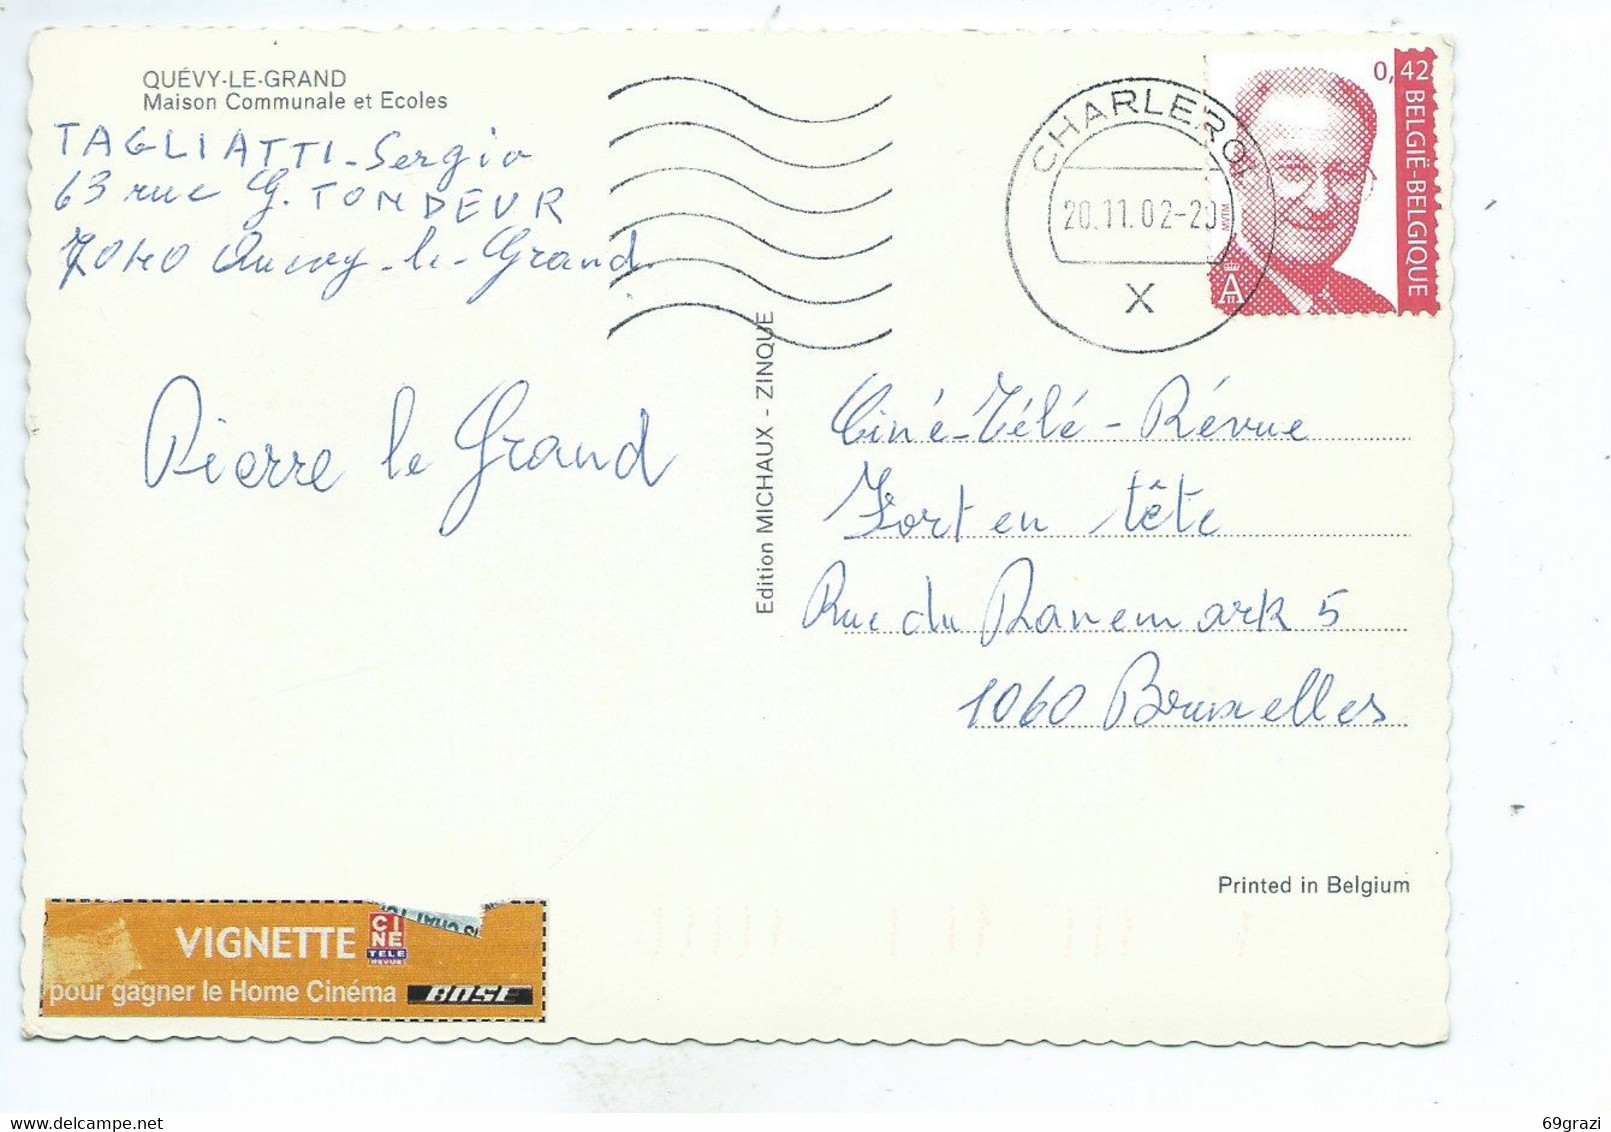 QUÉVY-LE-GRAND
Maison Communale et Ecoles
TAGLIATTI-Sergio
63 rue G. TONDEUR
7040 Quevy-le-Grand.
Pierre le Grand
Edition MICHAUX - ZINQUE
CHARLEROI
20.11.02-20
X
0,42
BELGIË-BELGIQUE
MVTM
A
Ciné-Télé-Révue
Fort en tête
Rue du Danemark 5
1060 Bruxelles
Printed in Belgium
VIGNETTE
CINE
TELE
REVUE
pour gagner le Home Cinéma BOSE
69grazi